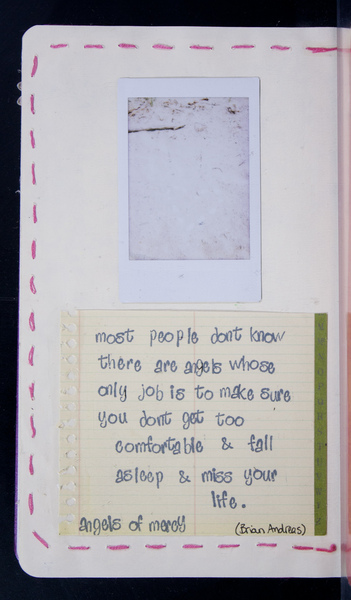 most people dont know
there are angels whose
only job is to make sure
you dont get too
comfortable & fall
asleep & miss your
life.
angels of mercy (Brian Andreas)